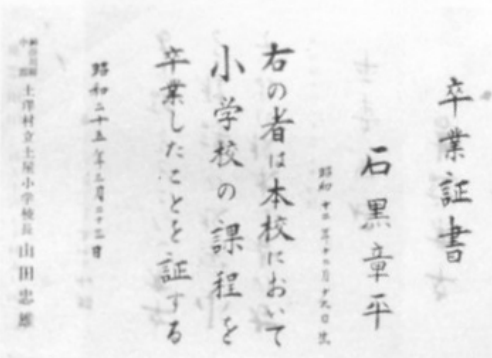 卒業証書
石黒章平
昭和十二年十二月十九日生
右の者は本校において
小学校の課程を
卒業したことを証する
昭和二十五年三月二十三日
土澤村立土屋小学校長 山田忠雄